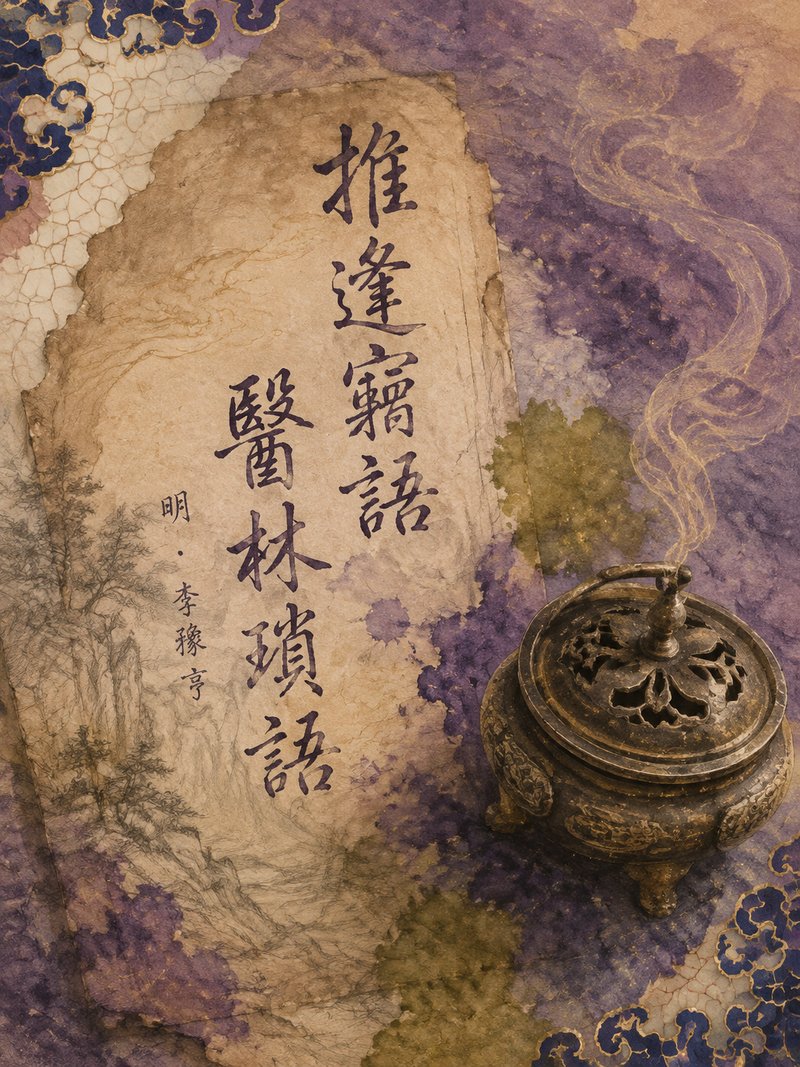 推逢語
醫林瑣語
明·李豫亨